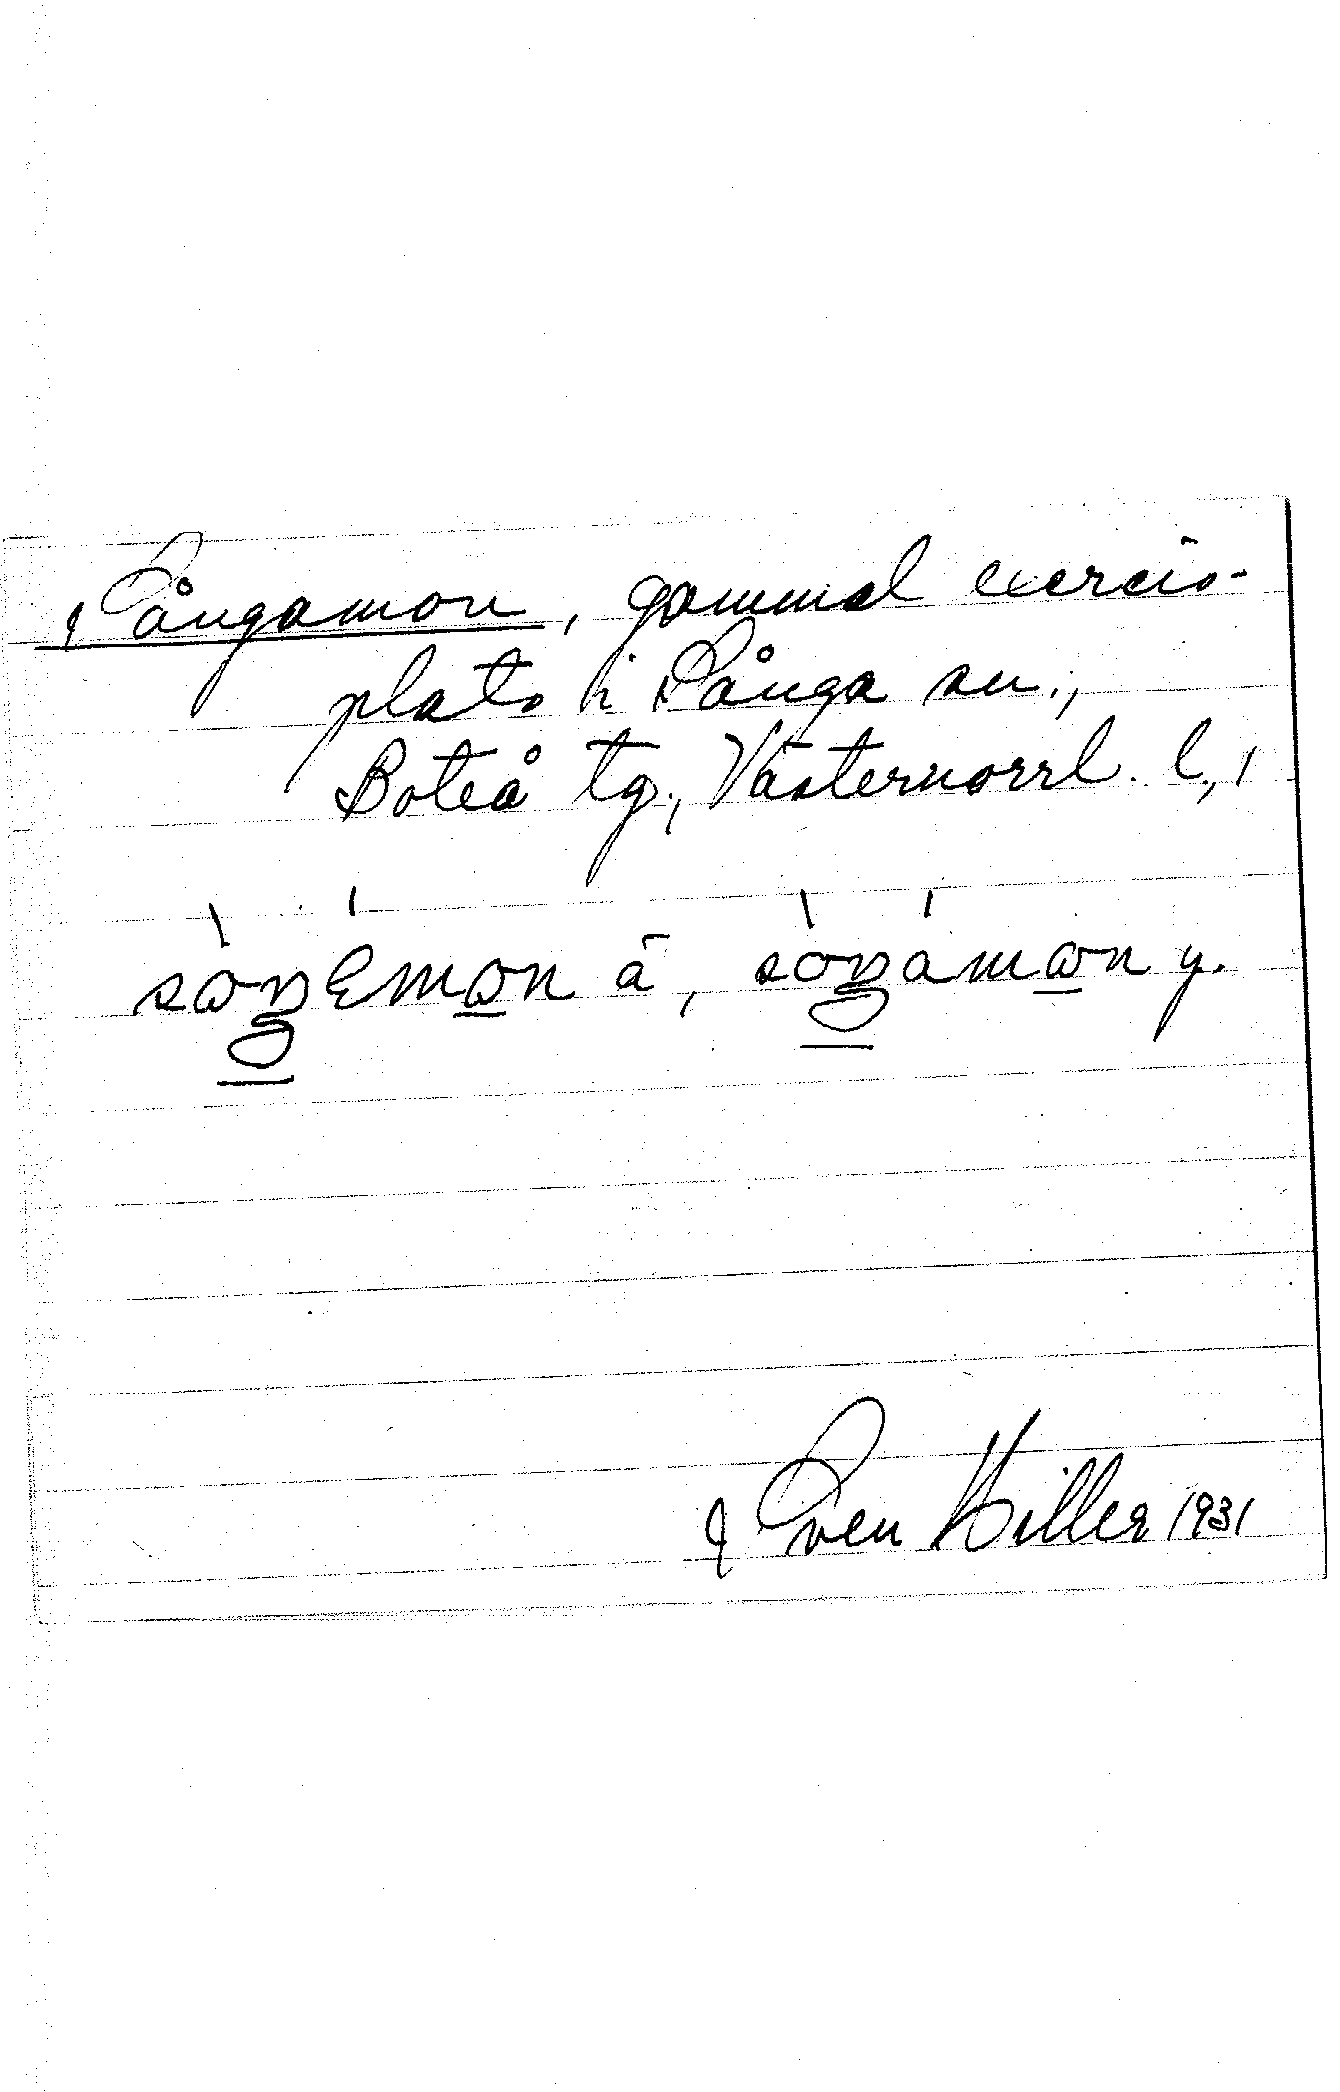 Sångamon, gammal exercis-
plats i Sånga sn.,
Boteå tg., Västernorrl. l.,
sòŋɛ́mɷn ä, sòŋámɷn y.
Sven Hiller 1931